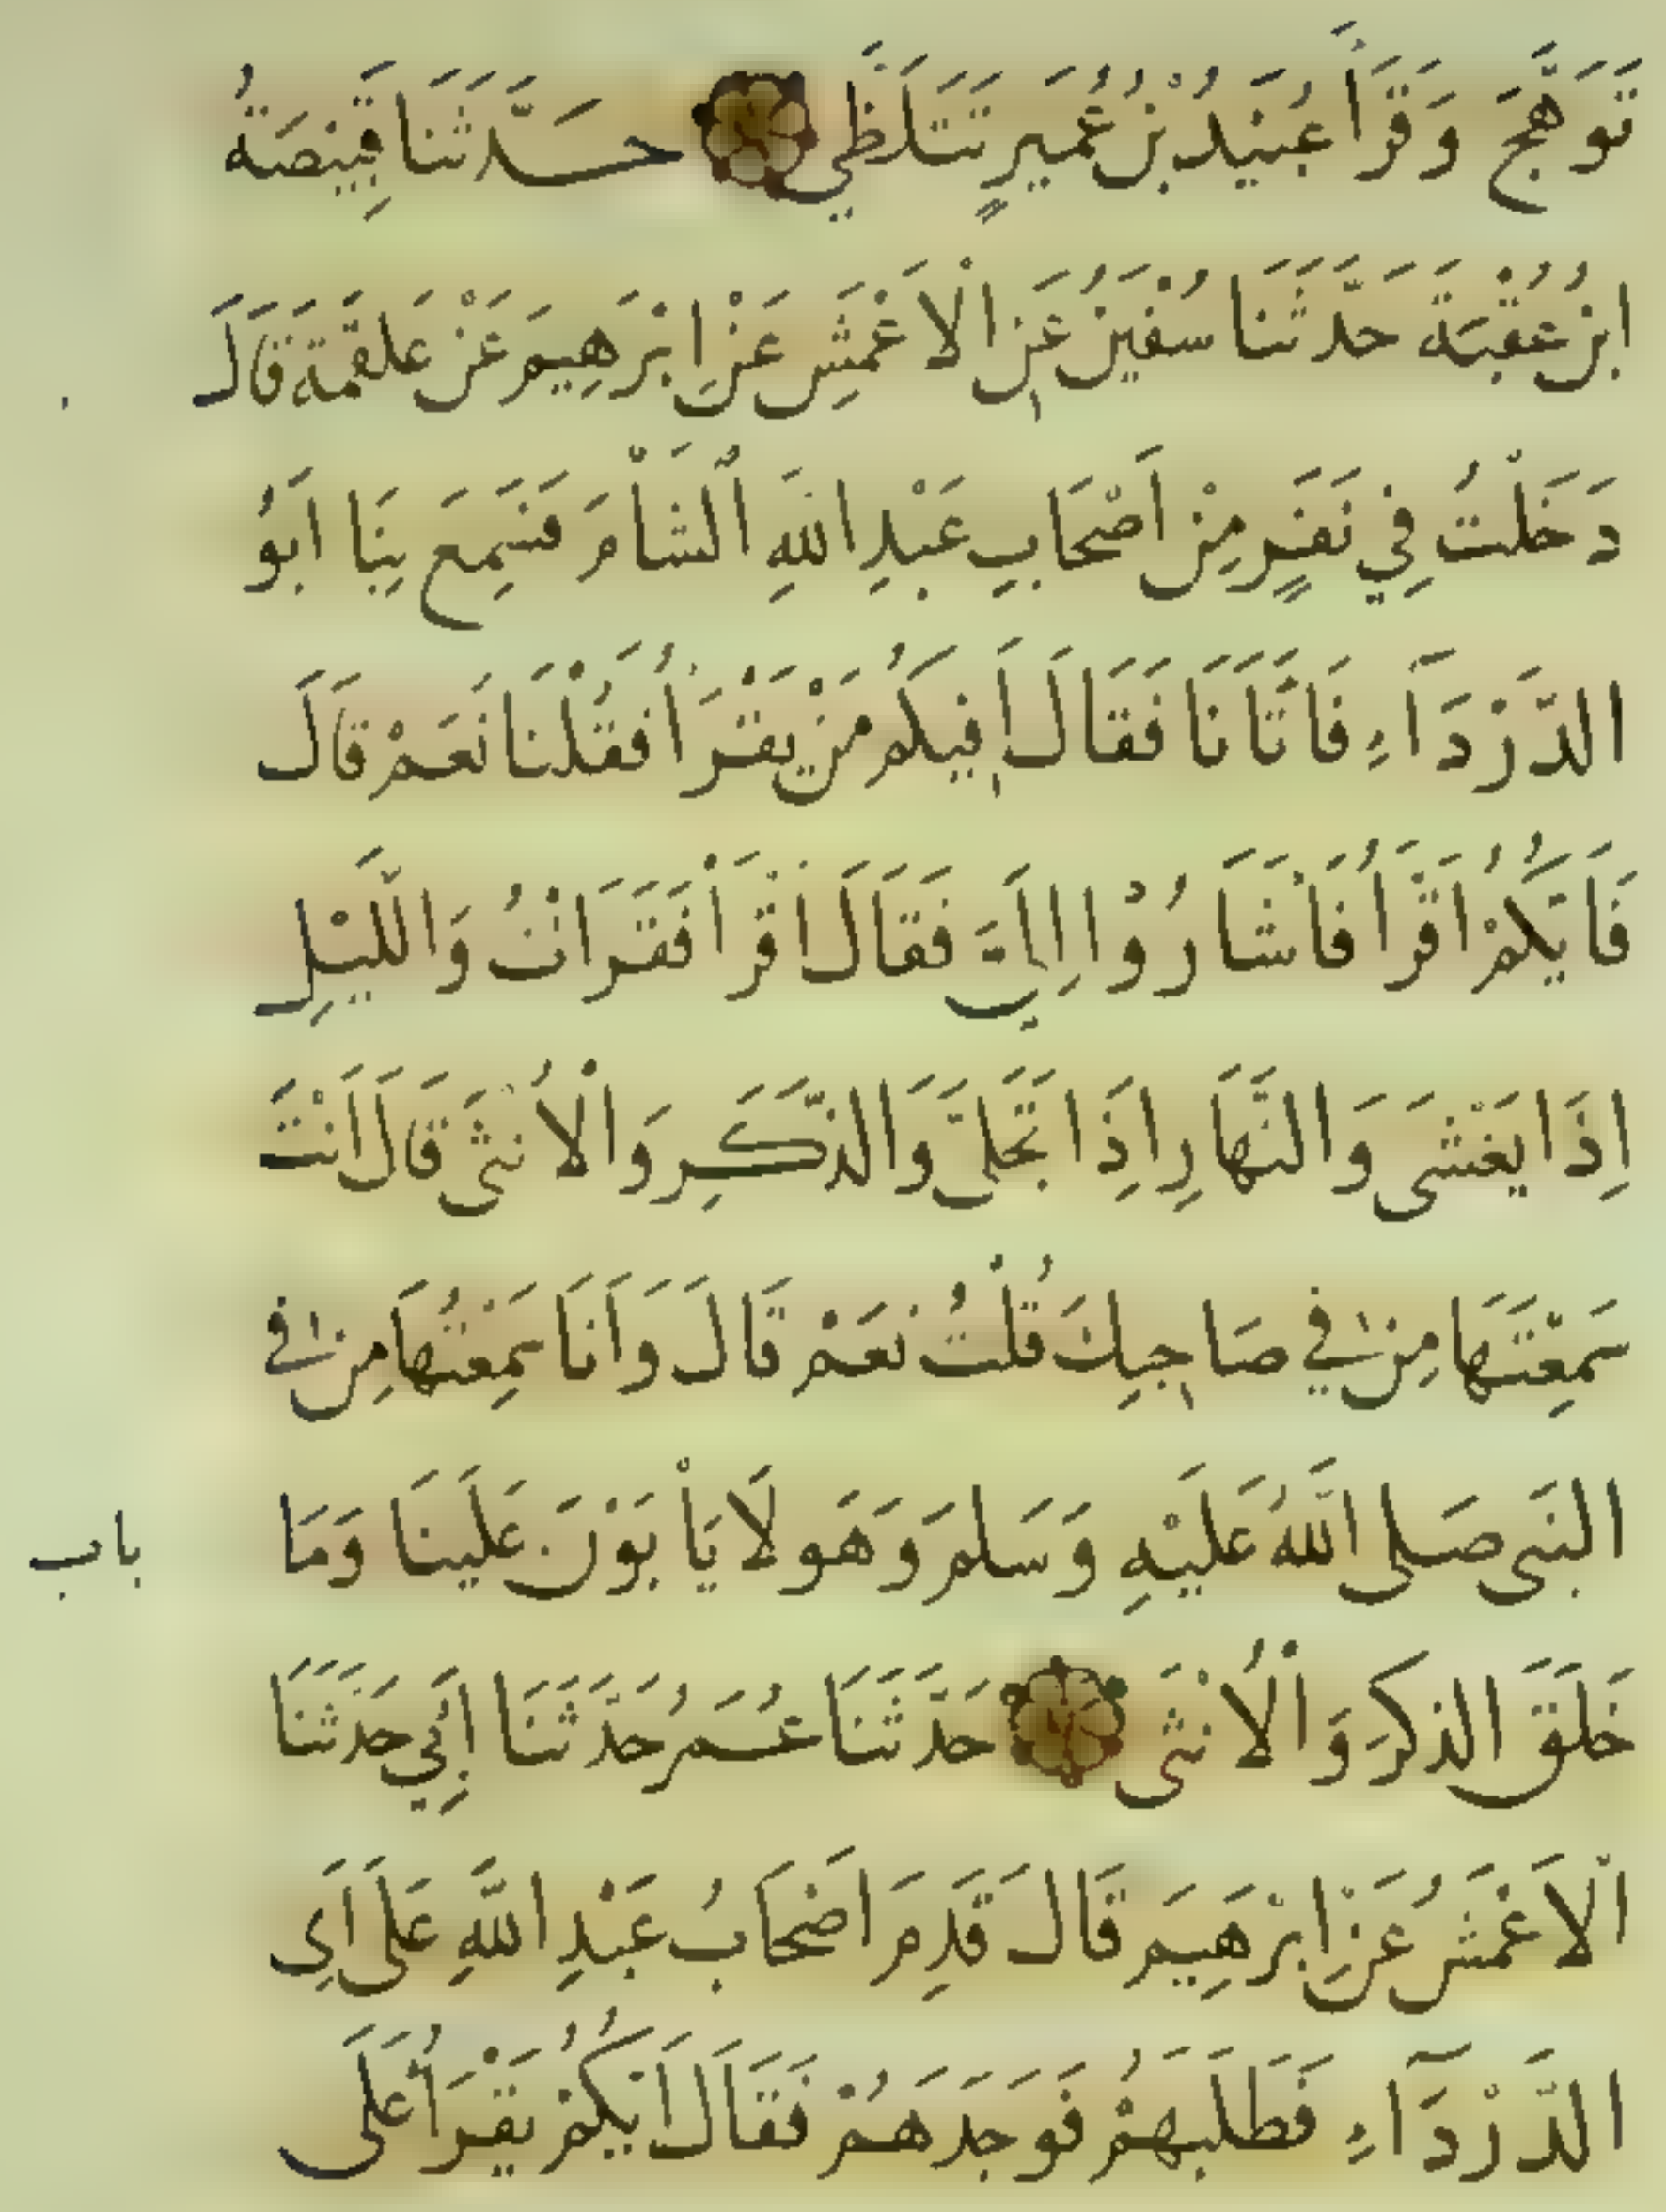 تَوَهَّجَ وَقَرَأَ عُبَيْدُ بْنُ عُمَيرٍ تَتَلَظَّى حَدَّثَنَا قَبِيْصَةُ
ابْنُ عُقْبَةَ حَدَّثَنَا سُفْيٰنُ عَنِ الْاَعْمَشِ عَنْ اِبْرَهِيمَ عَنْ عَلقَمَةَ قَالَ
دَخَلْتُ فِي نَفَرٍ مِنْ اَصْحَابِ عَبْدِ اللهِ الْشَاْمَ فَسَمِعَ بِنَا اَبُو
الدَّرْدَآءِ فَاَتَانَا فَقَالَ اَفِيكُم مَنْ يَقْرَأُ فَقُلْنَا نَعَمْ قَالَ
فَاَيُّكُمْ اَقْرَأُ فَاَشَارُوْا اِلَيَّ فَقَالَ اقْرَأْ فَقَرَاْتُ وَاللَّيْلِ
اِذَا يَغْشَى وَالنَّهَارِ اِذَا تَجَلَّى وَالذَّكَرِ وَالْاُنْثَى قَالَ اَنْتَ
سَمِعْتَهَا مِنْ فِي صَاحِبِكَ قُلْتُ نَعَمْ قَالَ وَاَنَا سَمِعْتُهَا مِنْ فِي
النَبِى صَلى اللَّهُ عَلَيْهِ وَسَلمَ وَهَولَاَ يَاْبَوْنَ عَلَينَا وَمَا
باب
خَلَقَ الذكَرَ وَالْاُنْثَى حَدَّثَنَا عُمَرُ حَدَّثَنَا اَبِي حَدَّثَنَا
الْاَعْمَشُ عَنْ اِبْرَهِيمَ قَالَ قَدِمَ اَصْحَابُ عَبْدِ اللَّهِ عَلَى اَبِى
الدَّرْدَآءِ فَطَلَبَهُمْ فَوَجَدَهُمْ فَقَالَ اَيُّكُمْ يَقْرَأُ عَلَى